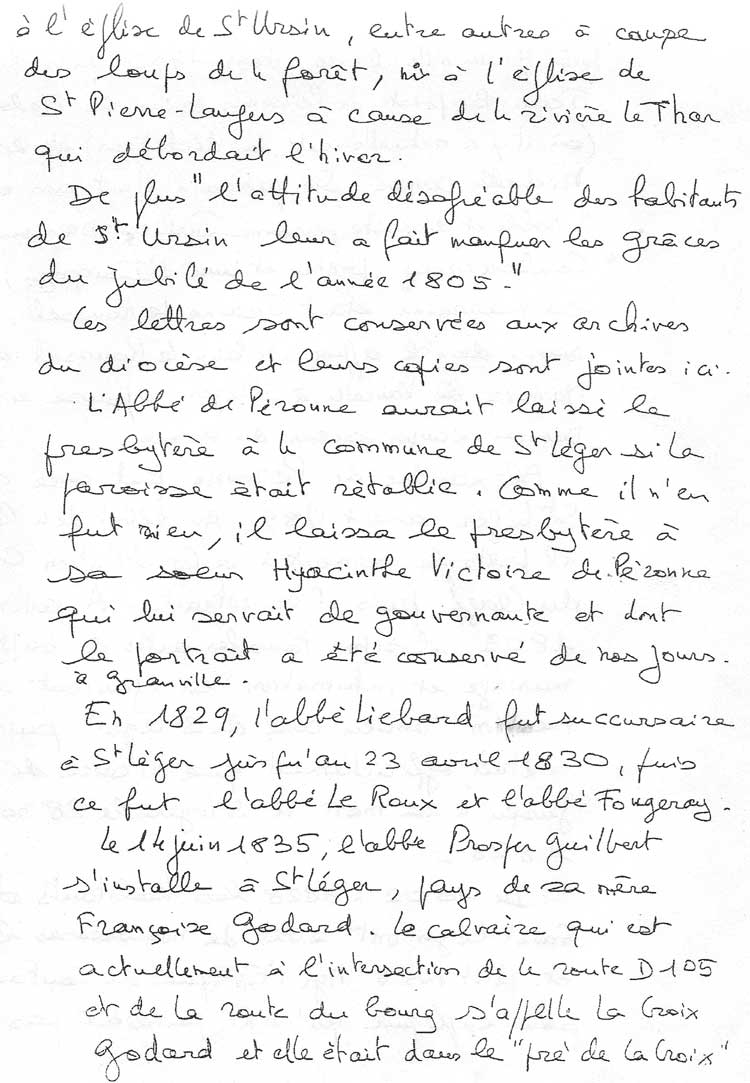 à l'église de St Ursin, entre autres à cause
des loups de la forêt, ni à l'église de
St Pierre-Langers à cause de la rivière le Thar
qui débordait l'hiver.
De plus "l'attitude désagréable des habitants
de St Ursin leur a fait manquer les grâces
du jubilé de l'année 1805."
Ces lettres sont conservées aux archives
du diocèse et leurs copies sont jointes ici.
L'Abbé de Péronne aurait laissé le
presbytère à la commune de St Léger si la
paroisse était rétablie. Comme il n'en
fut rien, il laissa le presbytère à
sa soeur Hyacinthe Victoire de Péronne
qui lui servait de gouvernante et dont
le portrait a été conservé de nos jours.
à Granville.
En 1829, l'abbé Liebard fut succursaire
à St Léger jusqu'au 23 avril 1830, puis
ce fut l'abbé Le Roux et l'abbé Fougeray.
Le 14 juin 1835, l'abbé Prosper Guilbert
s'installe à St Léger, pays de sa mère
Françoise Godard. Le calvaire qui est
actuellement à l'intersection de la route D105
et de la route du bourg s'appelle La Croix
Godard et elle était dans le "pré de la Croix"